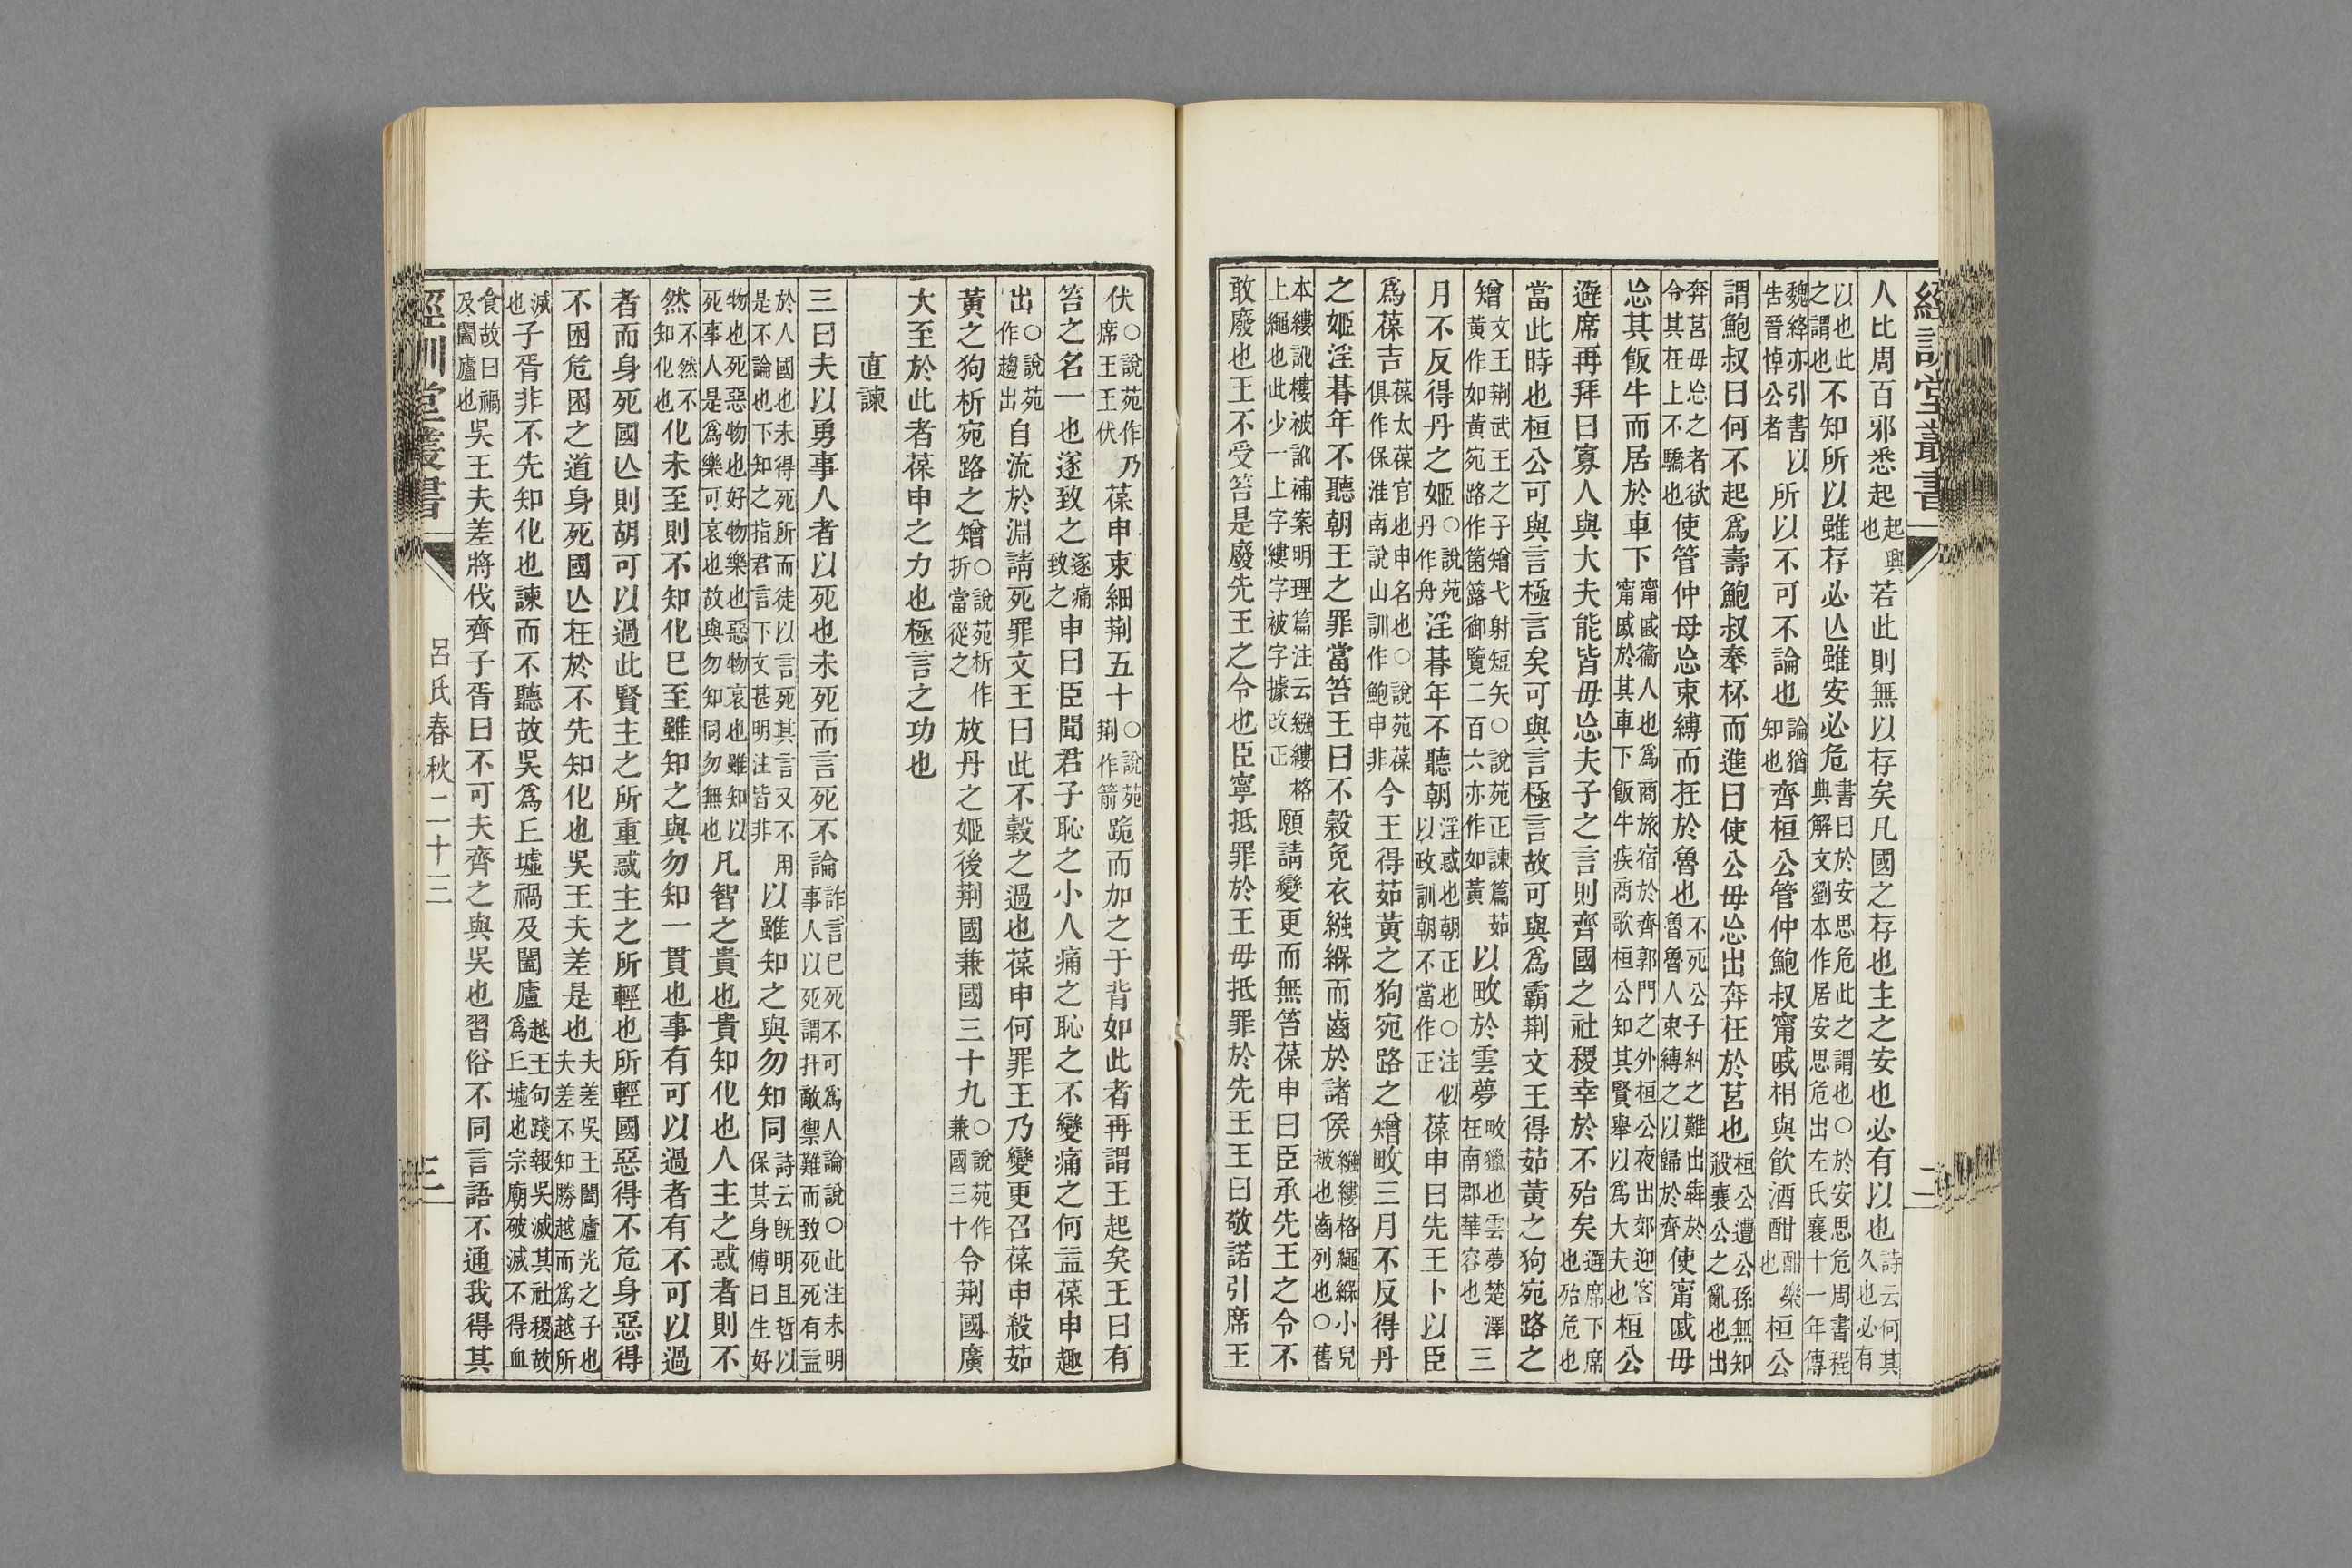 經訓堂叢書
二
人比周百邪悉起起與也若此則無以存矣凡國之存也主之安也必有以也詩云何其久也必有
以也此之謂也不知所以雖存必亾雖安必危書曰於安思危此之謂也○於安思危周書程典解文劉本作居安思危出左氏襄十一年傳
魏絳亦引書吿晉悼公者以所以不可不論也論猶知也齊桓公管仲鮑叔甯戚相與飲酒酣酣樂也桓公
謂鮑叔曰何不起爲壽鮑叔奉杯而進曰使公毋忘出奔在於莒也桓公遭公孫無知殺襄公之亂也出
奔莒毋忘之者欲令其在上不驕也使管仲毋忘束縛而在於魯也不死公子糾之難出奔於魯魯人束縛之以歸於齊使甯戚毋
忘其飯牛而居於車下甯戚衞人也爲商旅宿於齊郭門之外桓公夜出郊迎客甯戚於其車下飯牛疾商歌桓公知其賢舉以爲大夫也桓公
避席再拜曰寡人與大夫能皆毋忘夫子之言則齊國之社稷幸於不殆矣避席下席也殆危也
當此時也桓公可與言極言矣可與言極言故可與爲霸荆文王得茹黃之狗宛路之
矰文王荆武王之子矰弋射短矢○說苑正諫篇茹黃作如黃宛路作箘簬御覽二百六亦作如黃以畋於雲夢畋獵也雲夢楚澤在南郡華容也三
月不反得丹之姬○說苑丹作舟淫朞年不聽朝淫惑也朝正也○注似以政訓朝不當作正葆申曰先王卜以臣
爲葆吉葆太葆官也申名也○說苑葆俱作保淮南說山訓作鮑申非今王得茹黃之狗宛路之矰畋三月不反得丹
之姬淫朞年不聽朝王之罪當笞王曰不穀免衣繈緥而齒於諸侯繈縷格繩緥小兒被也齒列也○舊
本縷訛樓被訛補案明理篇注云繈縷格上繩也此少一上字縷字被字據改正願請變更而無笞葆申曰臣承先王之令不
敢廢也王不受笞是廢先王之令也臣寧抵罪於王毋抵罪於先王王曰敬諾引席王
伏○說苑作乃席王王伏葆申束細荆五十○說苑荆作箭跪而加之于背如此者再謂王起矣王曰有
笞之名一也遂致之遂痛致之申曰臣聞君子恥之小人痛之恥之不變痛之何益葆申趣
出○說苑作趨出自流於淵請死罪文王曰此不穀之過也葆申何罪王乃變更召葆申殺茹
黃之狗析宛路之矰○說苑析作折當從之放丹之姬後荆國兼國三十九○說苑作兼國三十令荆國廣
大至於此者葆申之力也極言之功也
直諫
三曰夫以勇事人者以死也未死而言死不論詐言已死不可爲人論說○此注未明事人以死謂扞敵禦難而致死死有益
於人國也未得死所而徒以言死其言又不用是不論也下知之指君言下文甚明注皆非以雖知之與勿知同詩云旣明且哲以保其身傅曰生好
物也死惡物也好物樂也惡物哀也雖知以死事人是爲樂可哀也故與勿知同勿無也凡智之貴也貴知化也人主之惑者則不
然不然不知化也化未至則不知化已至雖知之與勿知一貫也事有可以過者有不可以過
者而身死國亾則胡可以過此賢主之所重惑主之所輕也所輕國惡得不危身惡得
不困危困之道身死國亾在於不先知化也吳王夫差是也夫差吳王闔廬光之子也夫差不知勝越而爲越所
滅也子胥非不先知化也諫而不聽故吳爲丘墟禍及闔廬越王句踐報吳滅其社稷故爲丘墟也宗廟破滅不得血
食故曰禍及闔廬也吳王夫差將伐齊子胥曰不可夫齊之與吳也習俗不同言語不通我得其
經訓堂叢書
呂氏春秋二十三
三